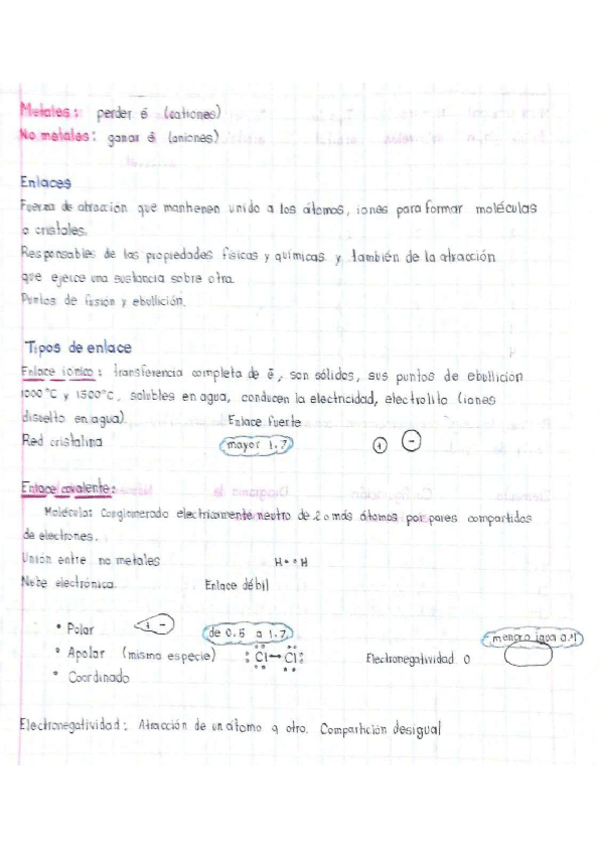 Metales: perder é (cationes)
No metales: ganar é (aniones)
Enlaces
Fuerza de atracción que mantienen unido a los átomos, iones para formar moléculas
o cristales.
Responsables de las propiedades físicas y químicas y también de la atracción
que ejerce una sustancia sobre otra.
Puntos de fusión y ebullición.
Tipos de enlace
Enlace iónico: transferencia completa de ē, son sólidos, sus puntos de ebullición
1000°C y 1500°C, solubles en agua, conducen la electricidad, electrolito (iones
disuelto en agua). Enlace fuerte
Red cristalina mayor 1.7 + -
Enlace covalente:
Molécula: Conglomerado electricamente neutro de 2 o más átomos por pares compartidos
de electrones.
Unión entre no metales H••H
Nube electrónica. Enlace débil
• Polar + - de 0.5 a 1.7
• Apolar (misma especie) :Cl—Cl: Electronegatividad 0 0.4
• Coordinado
Electronegatividad: Atracción de un átomo a otro. Compartición desigual